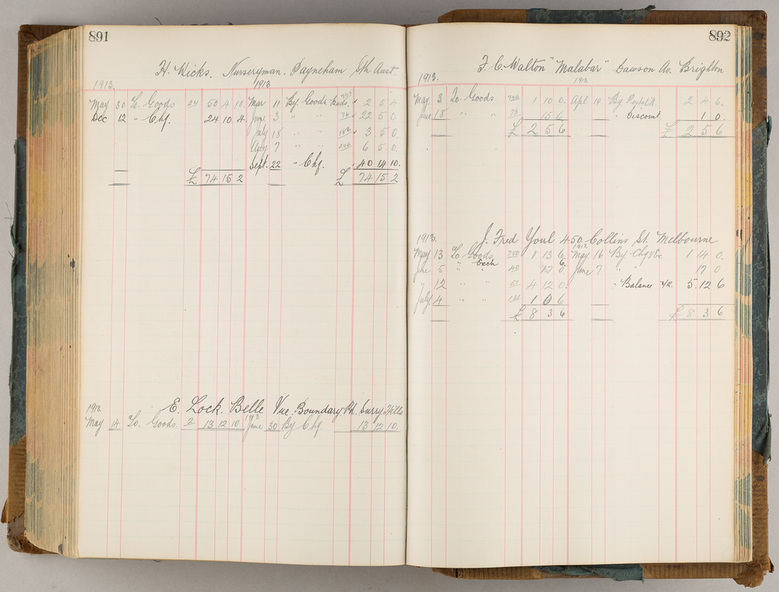 891
H. Wicks. Nurseryman. Payneham Sth Aust.
1913. 1913
May 30 To Goods 24 50 4 11 Mar 11 By Goods 2 5 4
Dec 12 " Chq. 24 10 4 June 3 " " 22 5 0
July 18 " " 3 5 0
Aug 7 " " 6 5 0
Sept. 22 " Chq. 40 14 10.
£ 74 15 2 £ 74 15 2
E. Lock. Belle Vue. Boundary Rd. Surry Hills
1913 1913
May 14 To Goods. 2 13 12 10 June 30 By Chq 13 12 10.
892
F. C. Walton "Malabar" Dawson Av. Brighton
1913. 1913
May 3 To Goods 1 10 0. Apl 14 By 2 4 6.
June 18 " " 15 6 " Discount 1 0.
£ 2 5 6 £ 2 5 6
J. Fred Youl 450 Collins St. Melbourne
1913. 1913
May 13 To Goods 1 13 6 May 16 By Chq 1 14 0.
June 5 " Cash 17 0 June 7 " " 17 0
" 12 " " 4 12 0. " Balance 5. 12 6
July 4 " " 1 0 6
£ 8 3 6 £ 8 3 6